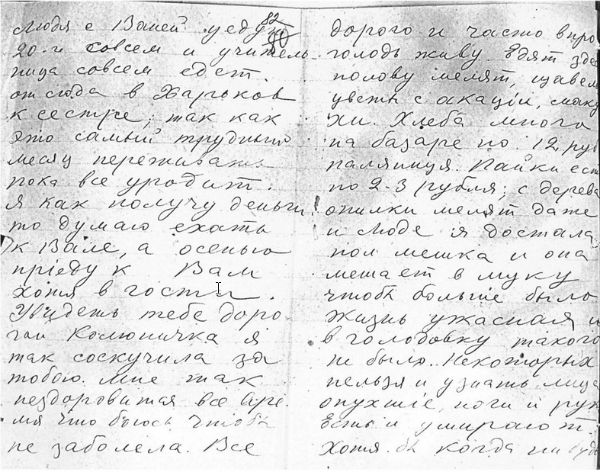 Людя с Ваней уедут
82
20-и совсем и учитель
ница совсем едет.
отсюда в Харьков
к сестре, так как
это самый трудный
месяц переживать
пока все уродит.
Я как получу деньги
то думаю ехать
к Вале, а осенью
приеду к Вам
хотя в гости.
Увидеть тебе доро-
гая Колюничка я
так соскучила за
тобою. Мне так
нездоровитая все вре-
мя что боюсь чтобы
не заболела. Все
дорого и часто впро
голодь живу. Едят здесь
полову мелят, щавель
цветы с акации, маку
хи. Хлеба много
на базаре по 12 руб
паляниця. Пайки есть
по 2-3 рубля; с дерева
опилки мелят даже
и Люде я достала
пол мешка и она
мешает в муку
чтобы больше было
Жизнь ужасная и
в голодовку такого
не было. Некоторых
нельзя и узнать лица
опухшие, ноги и рук
Есть и умирают.
Хотя бы когда нибудь